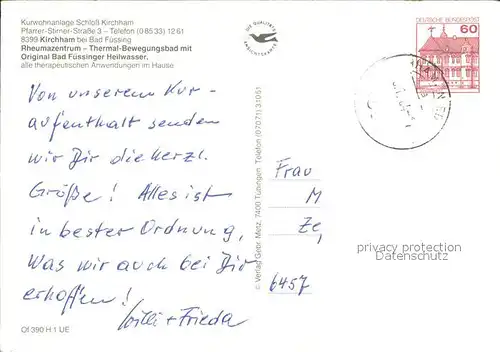 Kurwohnanlage Schloß Kirchham
Pfarrer-Stirner-Straße 3 – Telefon (0 85 33) 12 61
8399 Kirchham bei Bad Füssing
Rheumazentrum – Thermal-Bewegungsbad mit
Original Bad Füssinger Heilwasser,
alle therapeutischen Anwendungen im Hause
DIE QUALITÄTS
ANSICHTSKARTE
DEUTSCHE BUNDESPOST
60
Von unserem Kur-
aufenthalt senden
wir Dir die herzl.
Größe! Alles ist
in bester Ordnung,
Was wir auch bei Dir
erhoffen!
Willi + Frieda
© Verlag Gebr. Metz, 7400 Tübingen Telefon (07071) 31051
Frau
M
Ze,
6457
privacy protection
Datenschutz
Of 390 H 1 UE